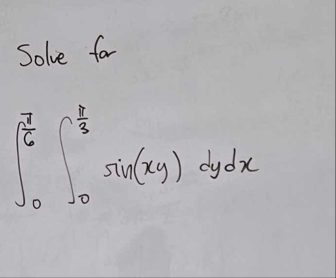 Solve for
∫₀^{π/6} ∫₀^{π/3} sin(xy) dydx